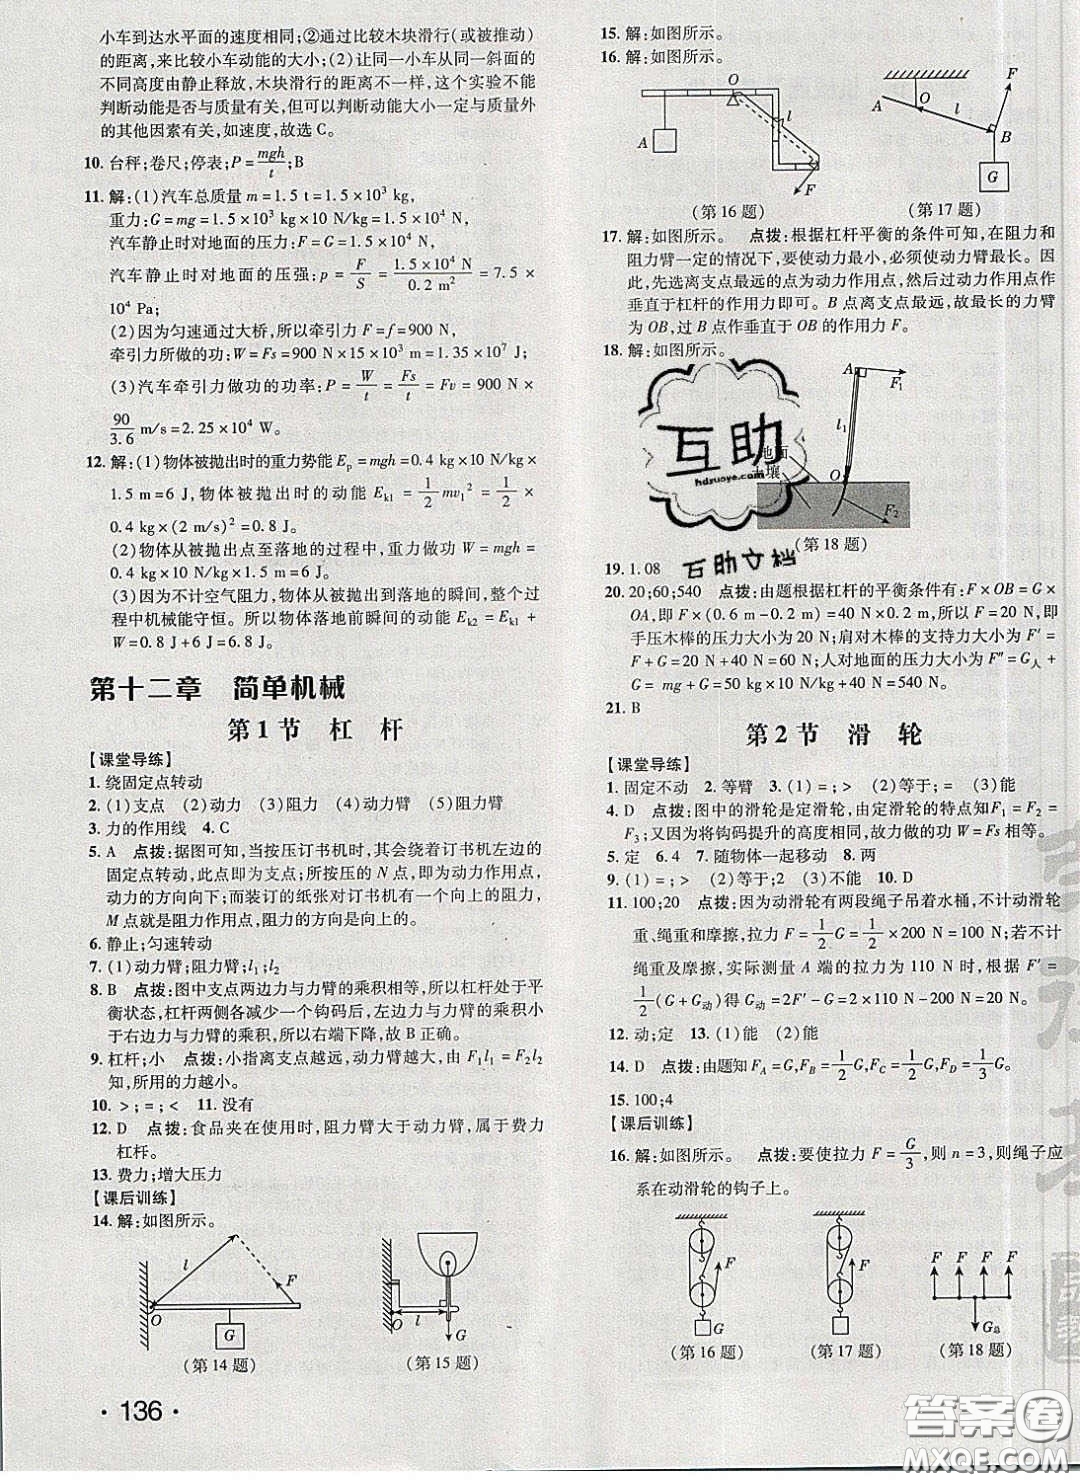 小车到达水平面的速度相同;②通过比较木块滑行(或被推动)
的距离,来比较小车动能的大小;(2)让同一小车从同一斜面的
不同高度由静止释放,木块滑行的距离不一样,这个实验不能
判断动能是否与质量有关,但可以判断动能大小一定与质量外
的其他因素有关,如速度,故选C。
10. 台秤;卷尺;停表;P=mgh/t;B
11. 解:(1)汽车总质量 m=1.5 t=1.5×10³ kg,
重力:G=mg=1.5×10³ kg×10 N/kg=1.5×10⁴ N,
汽车静止时对地面的压力:F=G=1.5×10⁴ N,
汽车静止时对地面的压强:p=F/S=1.5×10⁴ N/0.2 m²=7.5×
10⁴ Pa;
(2)因为匀速通过大桥,所以牵引力 F=f=900 N,
牵引力所做的功:W=Fs=900 N×15×10³ m=1.35×10⁷ J;
(3)汽车牵引力做功的功率:P=W/t=Fs/t=Fv=900 N×
90/3.6 m/s=2.25×10⁴ W。
12. 解:(1)物体被抛出时的重力势能 Eₚ=mgh=0.4 kg×10 N/kg×
1.5 m=6 J,物体被抛出时的动能 Eₖ₁=1/2mv₁²=1/2×
0.4 kg×(2 m/s)²=0.8 J。
(2)物体从被抛出点至落地的过程中,重力做功 W=mgh=
0.4 kg×10 N/kg×1.5 m=6 J。
(3)因为不计空气阻力,物体从抛出到落地的瞬间,整个过
程中机械能守恒。所以物体落地前瞬间的动能 Eₖ₂=Eₖ₁+
W=0.8 J+6 J=6.8 J。
第十二章 简单机械
第1节 杠 杆
【课堂导练】
1. 绕固定点转动
2. (1)支点 (2)动力 (3)阻力 (4)动力臂 (5)阻力臂
3. 力的作用线 4. C
5. A 点拨:据图可知,当按压订书机时,其会绕着订书机左边的
固定点转动,此点即为支点;按压的 N 点,即为动力作用点,
动力的方向向下;而装订的纸张对订书机有一个向上的阻力,
M点就是阻力作用点,阻力的方向是向上的。
6. 静止;匀速转动
7. (1)动力臂;阻力臂;l₁;l₂
8. B 点拨:图中支点两边力与力臂的乘积相等,所以杠杆处于平
衡状态,杠杆两侧各减少一个钩码后,左边力与力臂的乘积小
于右边力与力臂的乘积,所以右端下降,故 B 正确。
9. 杠杆;小 点拨:小指离支点越远,动力臂越大,由 F₁l₁=F₂l₂
知,所用的力越小。
10. >;=;< 11. 没有
12. D 点拨:食品夹在使用时,阻力臂大于动力臂,属于费力
杠杆。
13. 费力;增大压力
【课后训练】
14. 解:如图所示。
l
F
O
G
(第14题)
O
l
G
(第15题)
·136·
15. 解:如图所示。
16. 解:如图所示。
O
l
A
F
(第16题)
A
O
l
F
B
G
(第17题)
17. 解:如图所示。 点拨:根据杠杆平衡的条件可知,在阻力和
阻力臂一定的情况下,要使动力最小,必须使动力臂最长。因
此,先选离支点最远的点为动力作用点,然后过动力作用点作
垂直于杠杆的作用力即可。B 点离支点最远,故最长的力臂
为 OB,过 B 点作垂直于 OB 的作用力 F。
18. 解:如图所示。
A
F₁
l₁
地面
土壤
O
F₂
(第18题)
互助
hdzuoye.com
互助文档
19. 1.08
20. 20;60;540 点拨:由题根据杠杆的平衡条件有:F×OB=G×
OA,即 F×(0.6 m-0.2 m)=40 N×0.2 m,所以 F=20 N,即
手压木棒的压力大小为 20 N;肩对木棒的支持力大小为 F′=
F+G=20 N+40 N=60 N;人对地面的压力大小为 F″=G人+
G+F=mg+F+G=50 kg×10 N/kg+20 N+40 N=540 N。
21. B
第2节 滑 轮
【课堂导练】
1. 固定不动 2. 等臂 3. (1)=;> (2)>;= (3)能
4. D 点拨:图中的滑轮是定滑轮,由定滑轮的特点知F₁=F₂=
F₃;又因为将钩码提升的高度相同,故力做的功 W=Fs 相等。
5. 定 6. 4 7. 随物体一起移动 8. 两
9. (1)=;> (2)2 (3)不能 10. D
11. 100;20 点拨:因为动滑轮有两段绳子吊着水桶,不计动滑轮
重、绳重和摩擦,拉力 F=1/2G=1/2×200 N=100 N;若不计
绳重及摩擦,实际测量 A 端的拉力为 110 N 时,根据 F′=
1/2(G+G动)得 G动=2F′-G=2×110 N-200 N=20 N。
12. 动;定 13. (1)能 (2)能
14. D 点拨:由题知 F_A=G,F_B=1/2G,F_C=1/2G,F_D=1/3G。
15. 100;4
【课后训练】
16. 解:如图所示。 点拨:要使拉力 F=G/3,则 n=3,则绳子应
系在动滑轮的钩子上。
F
(第16题)
F
(第17题)
F F F F
G总
(第18题)
答案圈
MXQE.COM